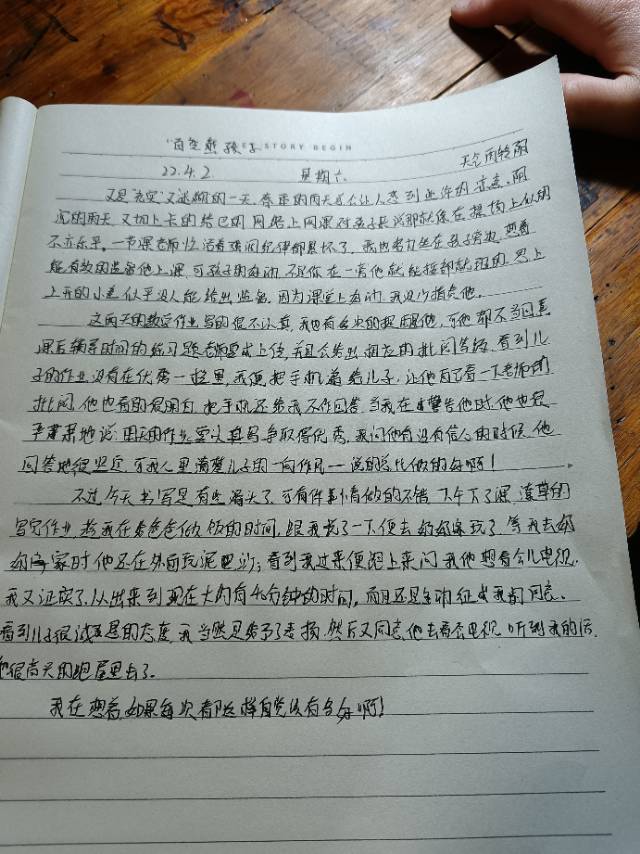 "百变熊孩子 STORY BEGIN
22.4.2 星期六 天气雨转阴
又是"充实"又迷糊的一天,春季的雨天总会让人感到 的 ,阴
沉的雨天,又加上卡的给巴的网络上网课对孩子来说那就像在操场上似的
不亦乐乎。一节课老师 闫纪律都 坏了,我也努力坐在孩子旁边,想着
能有效的监督他上课,可孩子的好动,不管你在一旁他就 ,思上
上开的小差似乎没人能给出监督。因为课堂上好动,我没少指责他。
这两天的数学作业写的很不认真,我也有多次的提醒他,可他都不当回事
课后辅导时间的练习题老师要求上传,并且会给出相应的批阅等级,看到儿
子的作业没有在优秀一栏里,我便把手机 给儿子,让他自己看一下老师的
批阅,他也看的很明白,把手机还给我不作回答,当我在 警告他时,他也很
严肃地说:明天的作业要认真写争取得优秀,我问他有没有信心的时候,他
回答地很坚定,可我心里清楚儿子的一向作风——说的总比做的好啊!
不过今天书写是有些 头了,可有件事情做的不错,下午下了课, 草的
写完作业,趁我在 爸爸做饭的时间,跟我说了一下便去奶奶家玩了,等我去奶
奶家时他还在外面玩泥巴沙;看到我过来便跑上来问我他想看会儿电视,
我又证实了,从出来到现在大约有40分钟的时间,而且还是主动征求我的同意。
看到儿子很诚恳的态度,我当然是给予了表扬,然后又同意他去看会电视,听到我的话
他很高兴的跑屋里去了。
我在想着,如果每次都这样自觉该有多好啊!